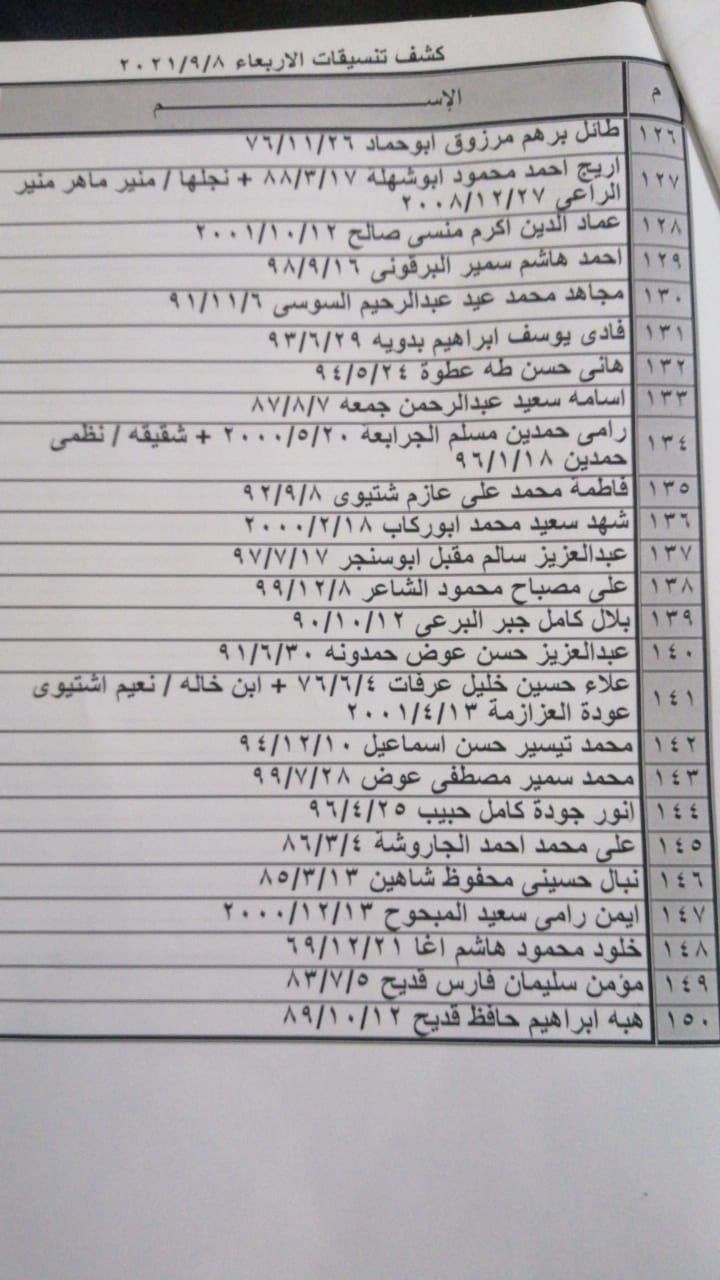 كشف تنسيقات الاربعاء ٢٠٢١/٩/٨
م الإســـــــــــــــــــــــــــــــــم
١٢٦ طائل برهم مرزوق ابوحماد ٧٦/١١/٢٦
١٢٧ اريج احمد محمود ابوشهله ٨٨/٣/١٧ + نجلها / منير ماهر منير
الراعي ٢٠٠٨/١٢/٢٧
١٢٨ عماد الدين اكرم منسى صالح ٢٠٠١/١٠/١٢
١٢٩ احمد هاشم سمير البرقونى ٩٨/٩/١٦
١٣٠ مجاهد محمد عيد عبدالرحيم السوسى ٩١/١١/٦
١٣١ فادى يوسف ابراهيم بدويه ٩٣/٦/٢٩
١٣٢ هانى حسن طه عطوة ٩٤/٥/٢٤
١٣٣ اسامه سعيد عبدالرحمن جمعه ٨٧/٨/٧
١٣٤ رامى حمدين مسلم الجرابعة ٢٠٠٠/٥/٢٠ + شقيقه / نظمى
حمدين ٩٦/١/١٨
١٣٥ فاطمة محمد على عازم شتيوى ٩٢/٩/٨
١٣٦ شهد سعيد محمد ابوركاب ٢٠٠٠/٢/١٨
١٣٧ عبدالعزيز سالم مقبل ابوسنجر ٩٧/٧/١٧
١٣٨ على مصباح محمود الشاعر ٩٩/١٢/٨
١٣٩ بلال كامل جبر البرعى ٩٠/١٠/١٢
١٤٠ عبدالعزيز حسن عوض حمدونه ٩١/٦/٣٠
١٤١ علاء حسين خليل عرفات ٧٦/٦/٤ + ابن خاله / نعيم اشتيوى
عودة العزازمة ٢٠٠١/٤/١٣
١٤٢ محمد تيسير حسن اسماعيل ٩٤/١٢/١٠
١٤٣ محمد سمير مصطفى عوض ٩٩/٧/٢٨
١٤٤ انور جودة كامل حبيب ٩٦/٤/٢٥
١٤٥ على محمد احمد الجاروشة ٨٦/٣/٤
١٤٦ نبال حسينى محفوظ شاهين ٨٥/٣/١٣
١٤٧ ايمن رامى سعيد المبحوح ٢٠٠٠/١٢/١٣
١٤٨ خلود محمود هاشم اغا ٦٩/١٢/٢١
١٤٩ مؤمن سليمان فارس قديح ٨٣/٧/٥
١٥٠ هبه ابراهيم حافظ قديح ٨٩/١٠/١٢